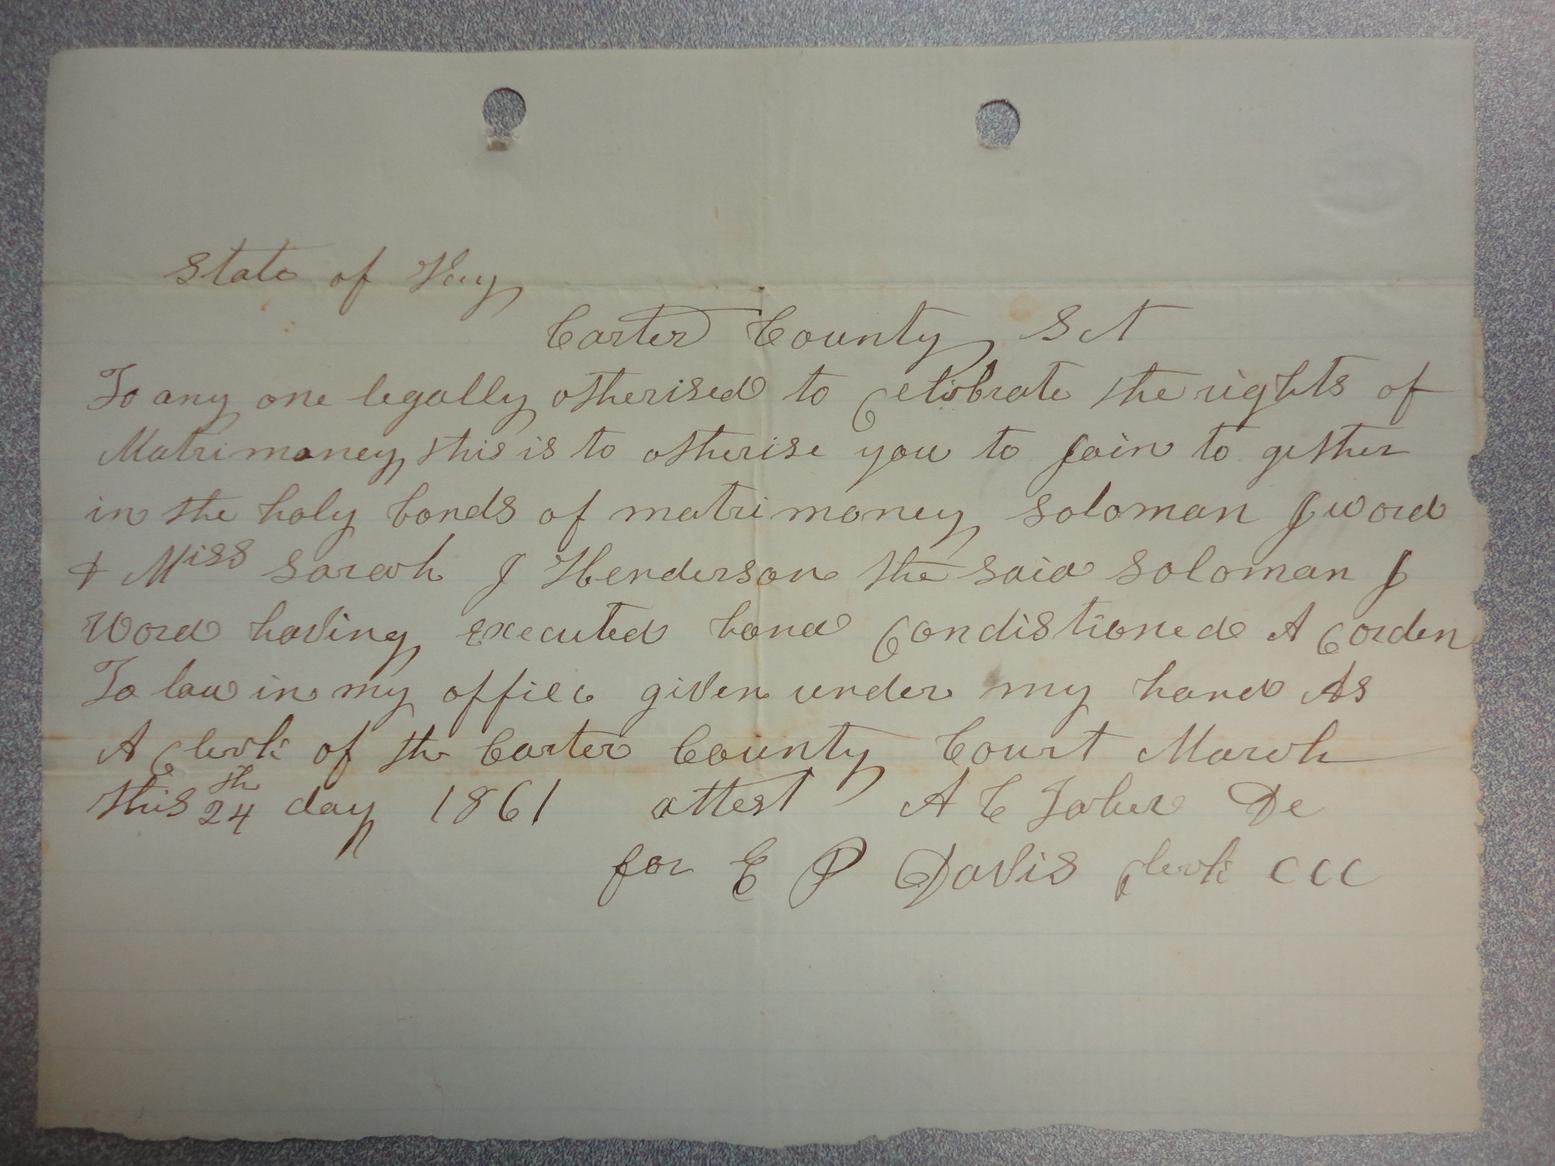 State of Key
Carter County Sct
To any one legally otherised to Celebrate the rights of
Matrimoney this is to otherise you to join to gether
in the holy bonds of matrimoney Soloman J Word
& Miss Sarah J Henderson the said Soloman J
Word having executed bond Condistioned A Corden
To law in my office given under my hand As
A Clerk of the Carter County Court March
this 24th day 1861 attest A C De
for E P Davis Clerk CCC